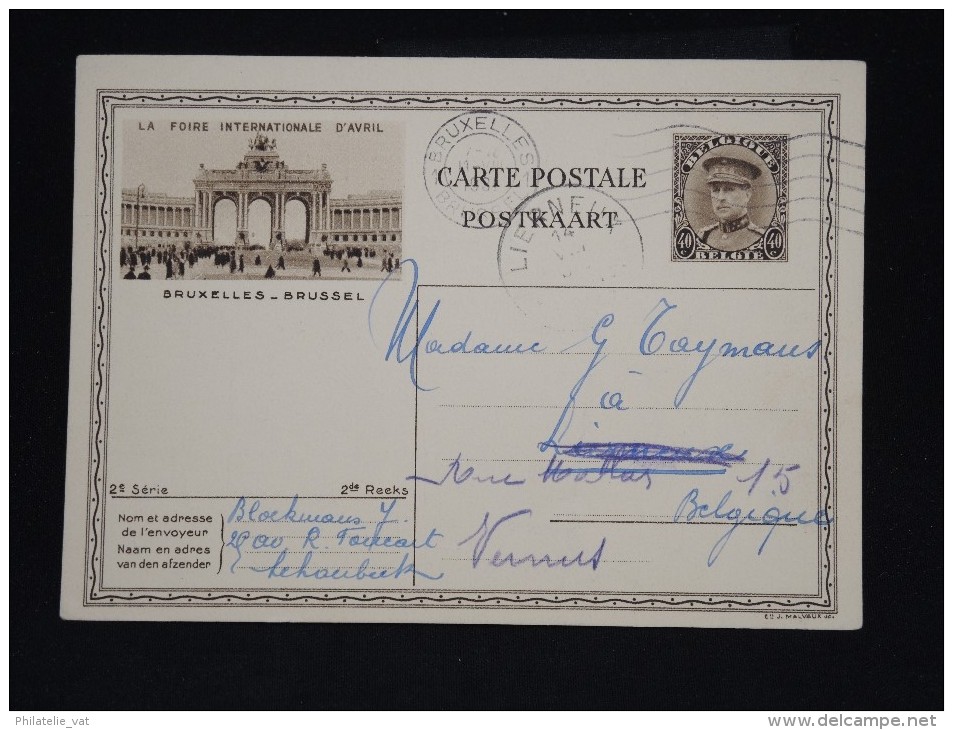 LA FOIRE INTERNATIONALE D'AVRIL
BRUXELLES _ BRUSSEL
BRUXELLES 1
CARTE POSTALE
POSTKAART
LIERNEUX
14
BELGIQUE
40 40
BELGIE
Madame G Taymans
à
Lierneux
Rue 15
Belgique
2e Série 2de Reeks
Nom et adresse
de l'envoyeur
Naam en adres
van den afzender
Blockmans J.
av R. Foucart
Schaerbeek
Ets J. MALVAUX
Philatelie_vat
www.delcampe.net